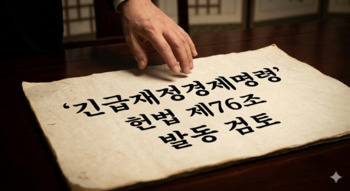 ‘긴급재정경제명령’
헌법 제76조
발동 검토